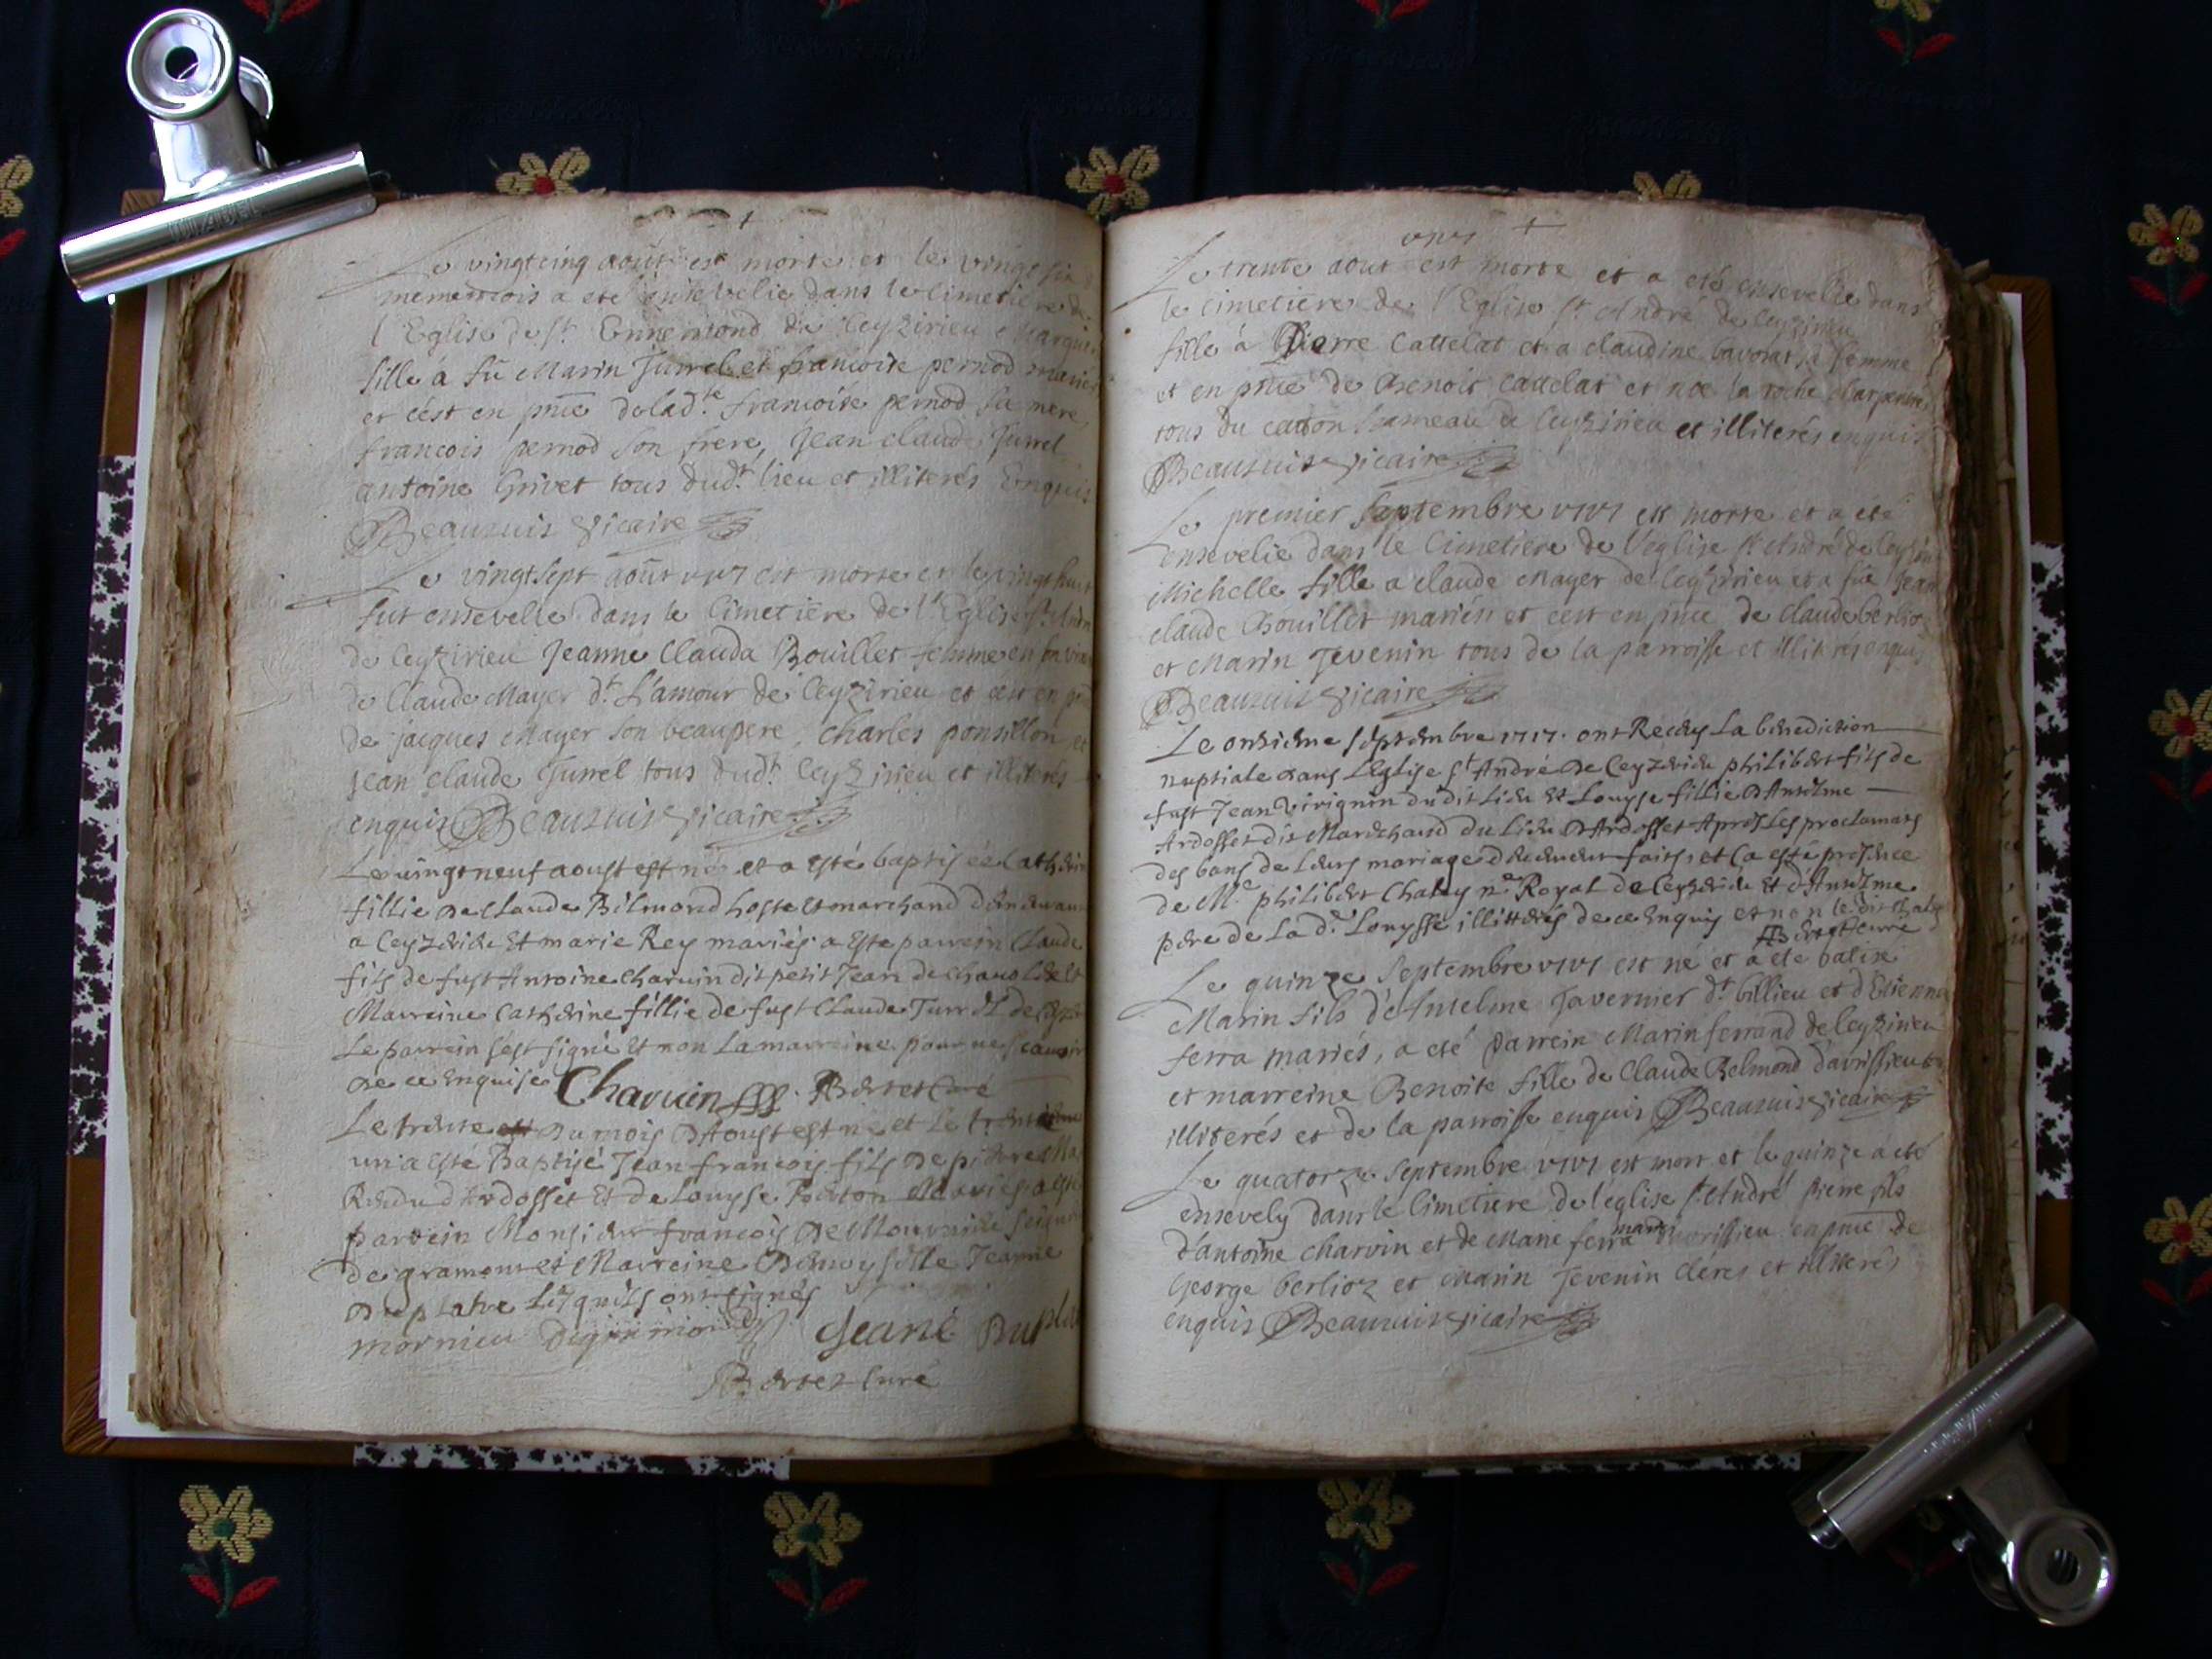 Le vingtcinq août est morte et le vingt six
meme mois a eté ensevelie dans le cimetiere de
l'Eglise de St. Ennemond de Ceyzirieu
fille à fû Marin Jurrel et francoise pernod mariés
et c'est en pnce de lad.te francoise pernod sa mere
francois pernod son frere, Jean claude Jurrel
antoine Grivet tous dud.t lieu et illiterés Enquis
Beauzuis vicaire
Le vingt sept août est morte et le vingt huit
fut ensevelie dans le Cimetiere de l'Eglise St. André
de Ceyzirieu Jeanne Clauda Bouillet femme en
de Claude Mayer d.t L'amour de Ceyzirieu et c'est en
de jacques Mayer son beaupere, Charles ponsillon et
Jean Claude Jurrel tous dud.t Ceyzirieu et illiterés
enquis Beauzuis vicaire
Le vingt neuf aoust est né et a esté baptisée Catherine
fillie de Claude Bilmond hoste et marchand
a Ceyzerieu Et marie Rey mariés a esté parrein Claude
fils de fust Antoine Charuin dit petit Jean de
Marreine Catherine fillie de fust Claude Jurrel de
Le parrein s'est signé Et non la marreine pour ne scauoir
de ce Enquise Charuin Bertet Curé
Le trente du mois d'Aoust est né et Le trente
un a esté Baptisé Jean francois fils de pierre
d'Ardosset Et de Louyse Mariés a esté
parrein Monsieur francois de Mournieu Seigneur
de gramont et Marreine Demoyselle Jeanne
Duplatre Lesquels ont signés
mornieu Jeane Duplatre
Bertet Curé
Le trente aout est morte et a eté ensevelie dans
le cimetiere de l'Eglise St André de Ceyzirieu
fille à Pierre Cattelat et a claudine bavorat sa femme
et en pnce de Benoit Cattelat et la roche charpentier
tous du hameau de Ceyzirieu et illiterés enquis
Beauzuis vicaire
Le premier Septembre 1717 est morte et a eté
ensevelie dans le Cimetiere de l'eglise St André de Ceyzirieu
Michelle fille a claude Mayer de Ceyzirieu et a fûe Jean
claude Bouillet mariés et c'est en pnce de claude berlioz
et Marin Jevenin tous de la parroisse et illiterés enquis
Beauzuis vicaire
Le onzieme septembre 1717. ont Receu La benediction
nuptiale dans L'Eglise St André de Ceyzerieu philibert fils de
fust Jean Virignin dudit Lieu Et Louyse fillie d'Anselme
Ardosset dit Marchand du Lieu d'Ardosset Apres les proclamats
des bans de Leurs mariage deduement faits, et ca esté presence
de Me philibert Chaley n.re Royal de Ceyzerieu Et d'Anselme
pere de La d.te Louysse illitterés de ce Enquis et non le dit Chaley
Bertet Curé
Le quinze Septembre 1717 est né et a eté batisé
Marin fils d'Anselme Tavernier d.t billieu et d'Etiennette
ferra mariés, a eté parrein Marin ferrand de Ceyzirieu
et marreine Benoite fille de Claude Belmond d'avrissieu
illiterés et de la parroisse enquis Beauzuis vicaire
Le quatorze Septembre 1717 est mort et le quinze a eté
ensevely dans le Cimetiere de l'eglise St André pierre fils
d'antoine charvin et de Marie ferra mariés d'avrissieu en pnce de
George berlioz et Marin Jevenin clercs et illiterés
enquis Beauzuis vicaire